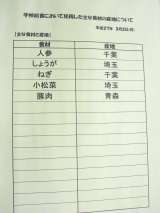 学校給食において使用した主な食材の産地について
平成27年 3月2日(月)
【主な食材と産地】
食材 産地
人参 千葉
しょうが 埼玉
ねぎ 千葉
小松菜 埼玉
豚肉 青森